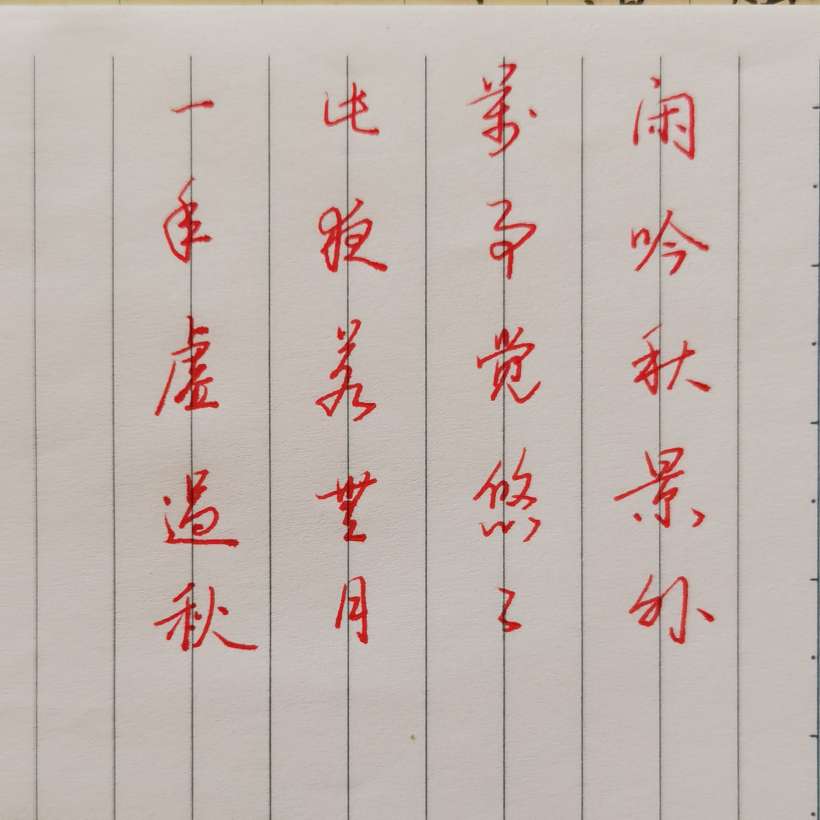 闲吟秋景外
萬事觉悠々
此夜若無月
一年虚過秋